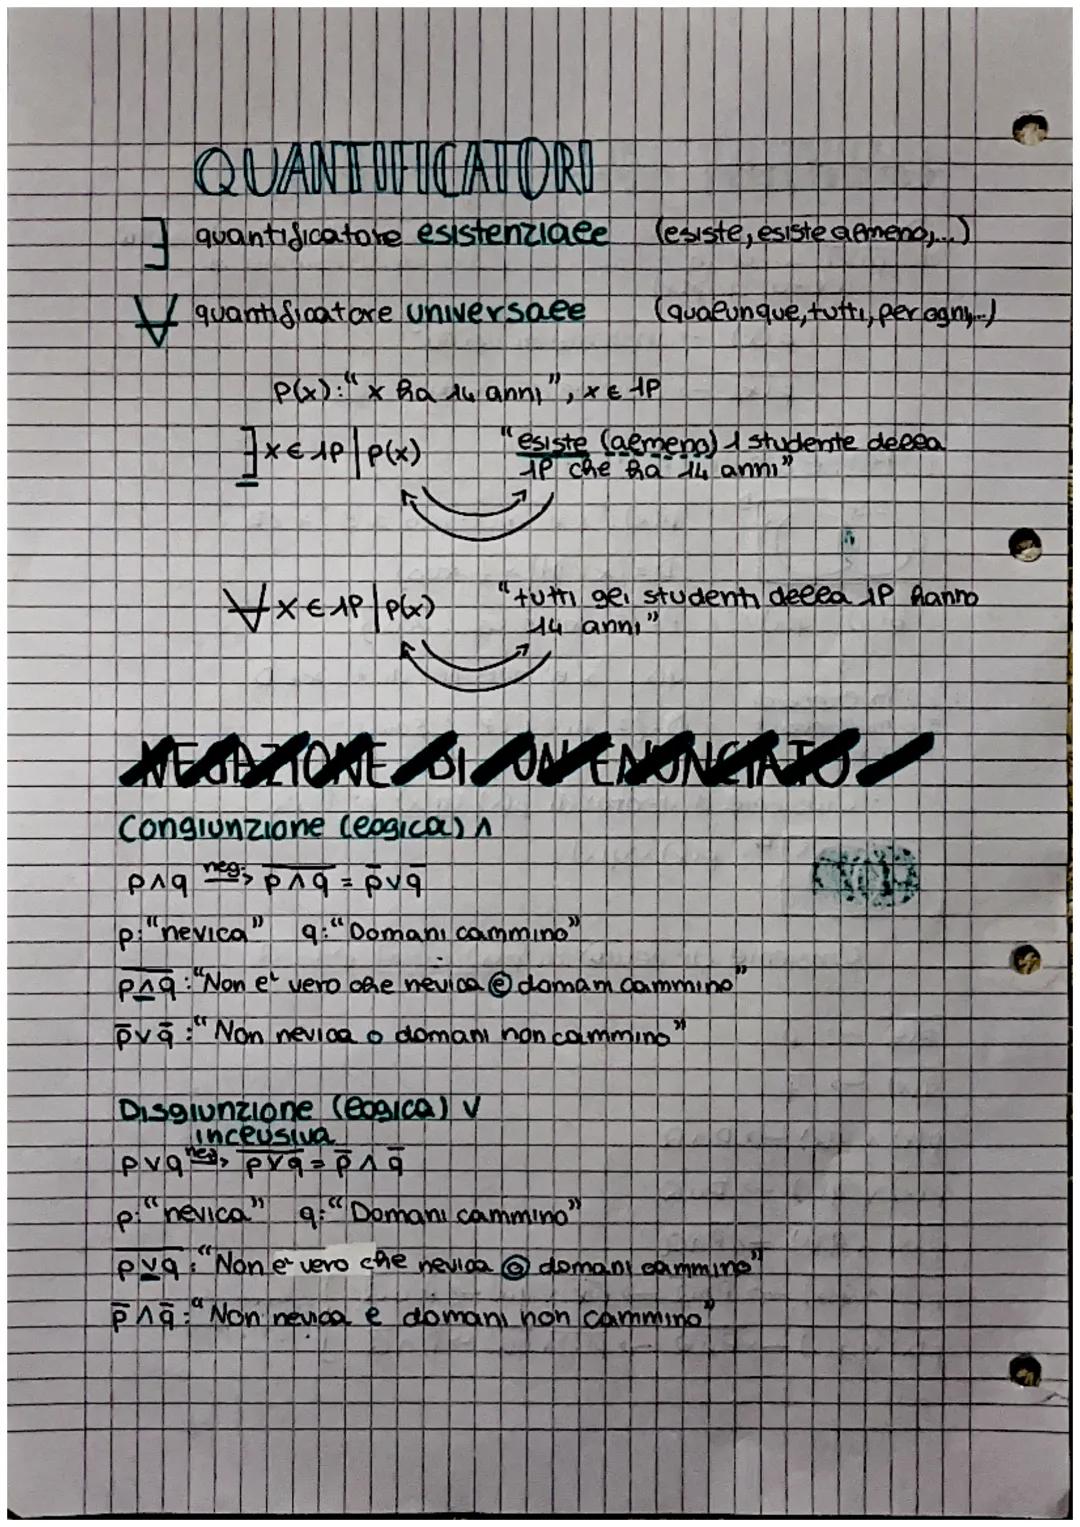 QUANTIFICATORI
∃ quantificatore esistenziale (esiste, esiste almeno,...)
∀ quantificatore universale (qualunque, tutti, per ogni,...)
p(x): "x ha 14 anni", x ∈ 1P
∃ x ∈ 1P | p(x) "esiste (almeno) 1 studente della
1P che ha 14 anni"
∀ x ∈ 1P | p(x) "tutti gli studenti della 1P hanno
14 anni"
NEGAZIONE DI UN ENUNCIATO
Congiunzione (logica) ∧
p∧q neg.> p̅∧̅q̅ = p̅∨q̅
p: "nevica" q: "Domani cammino"
p̅∧̅q̅: "Non è vero che nevica e domani cammino"
p̅∨q̅: "Non nevica o domani non cammino"
Disgiunzione (logica) ∨
inclusiva
p∨q neg.> p̅∨̅q̅ = p̅∧q̅
p: "nevica" q: "Domani cammino"
p̅∨̅q̅: "Non è vero che nevica o domani cammino"
p̅∧q̅: "Non nevica e domani non cammino"